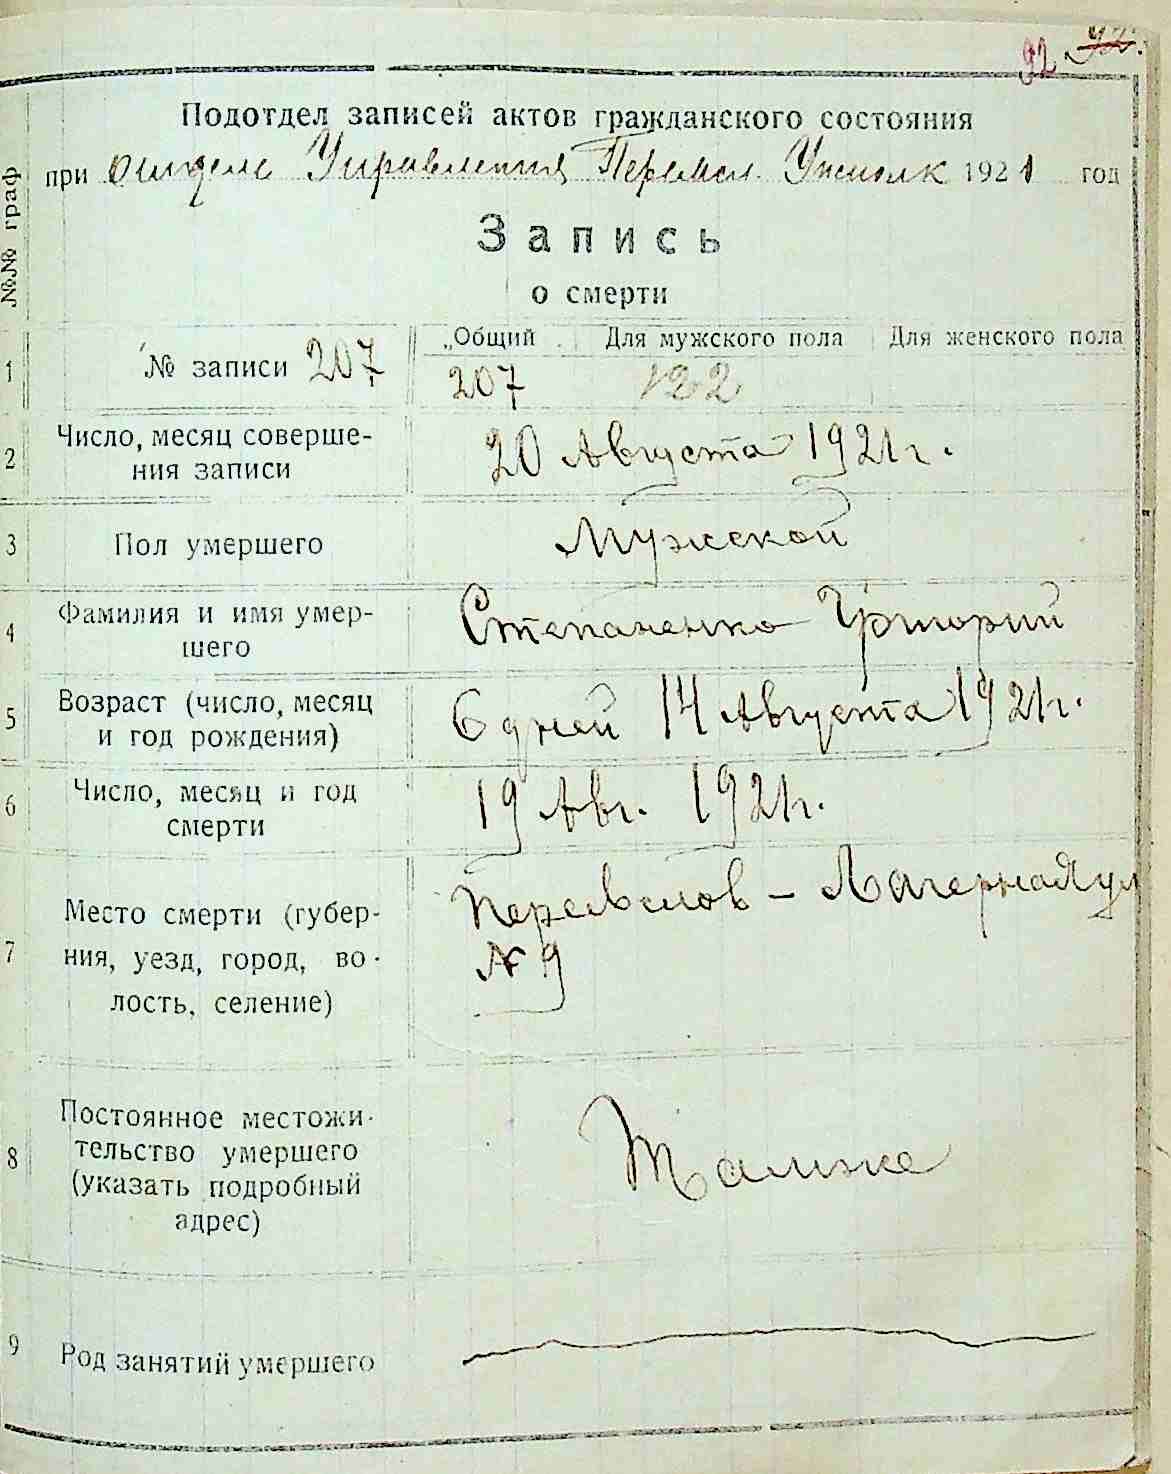 92 92.
Подотдел записей актов гражданского состояния
при отделе Управления Переясл. Уисполк 1921 год
№№ граф
Запись
о смерти
1 № записи 207 „Общий Для мужского пола Для женского пола
207 122
2 Число, месяц соверше-
ния записи
20 Августа 1921 г.
3 Пол умершего Мужской
4 Фамилия и имя умер-
шего
Степаненко Григорий
5 Возраст (число, месяц
и год рождения)
6 дней 14 Августа 1921 г.
6 Число, месяц и год
смерти
19 Авг. 1921 г.
7 Место смерти (губер-
ния, уезд, город, во-
лость, селение)
Переяслов - Лагерная ул
№ 9
8 Постоянное местожи-
тельство умершего
(указать подробный
адрес)
Там же
9 Род занятий умершего